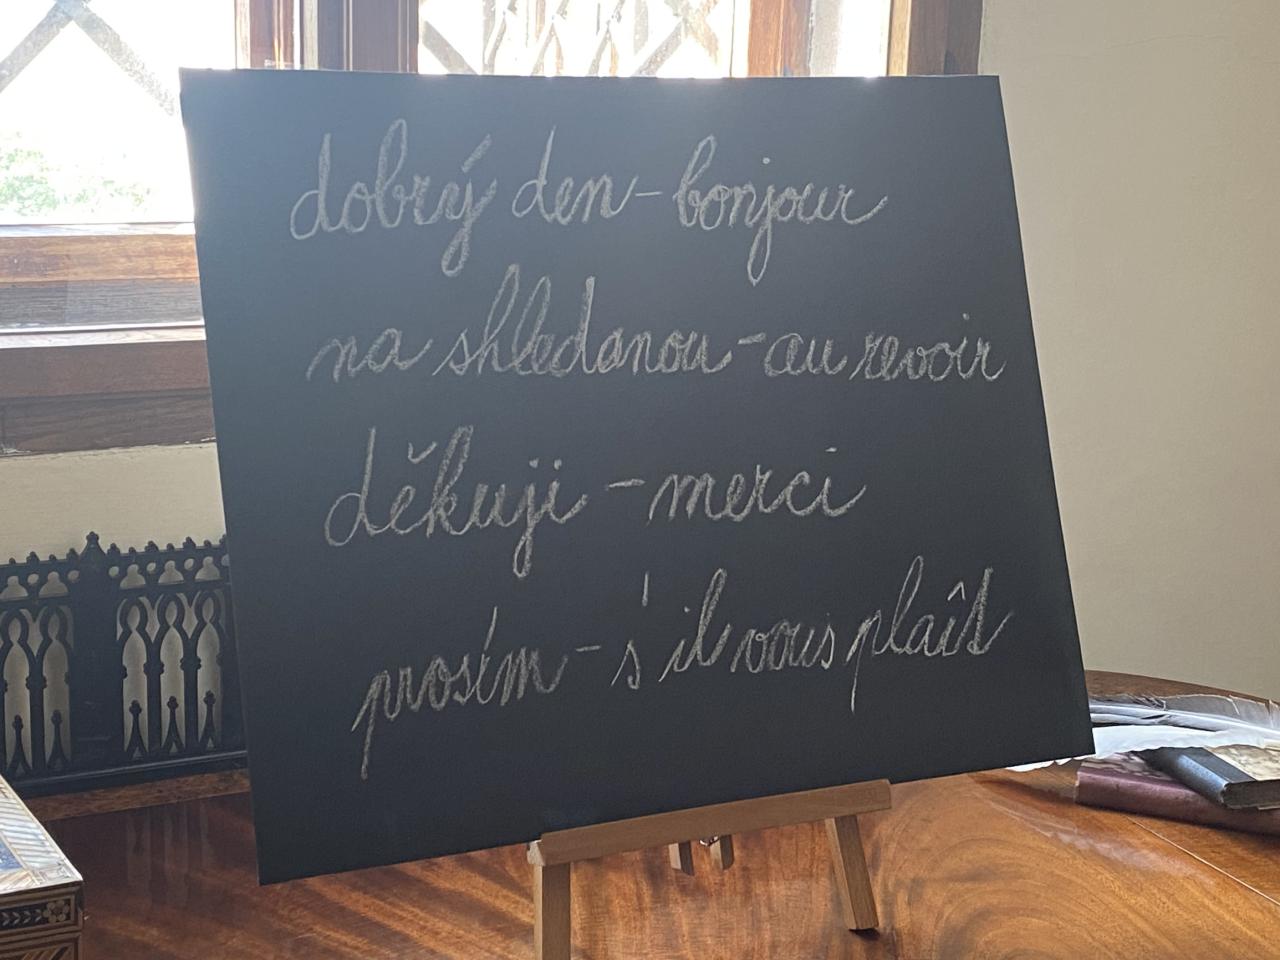 dobrý den - bonjour
na shledanou - au revoir
děkuji - merci
prosím - s'il vous plaît